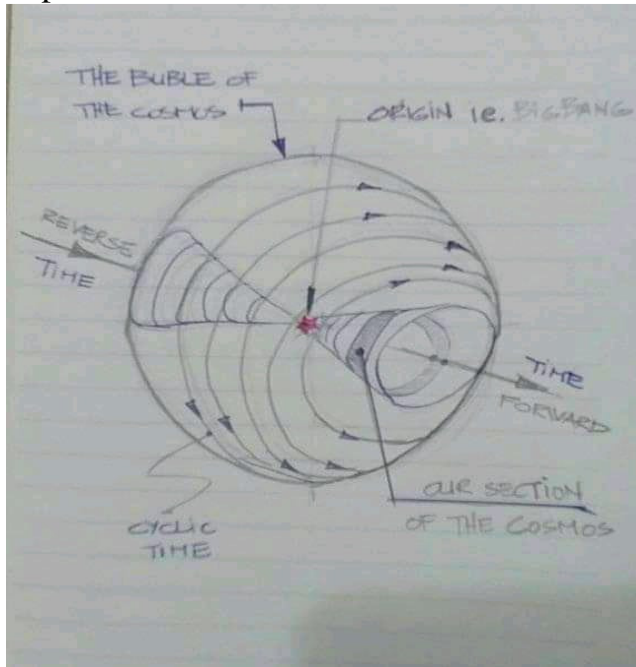 THE BUBLE OF
THE COSMOS
ORIGIN ie. BIGBANG
REVERSE
TIME
TIME
FORWARD
OUR SECTION
OF THE COSMOS
CYCLIC
TIME